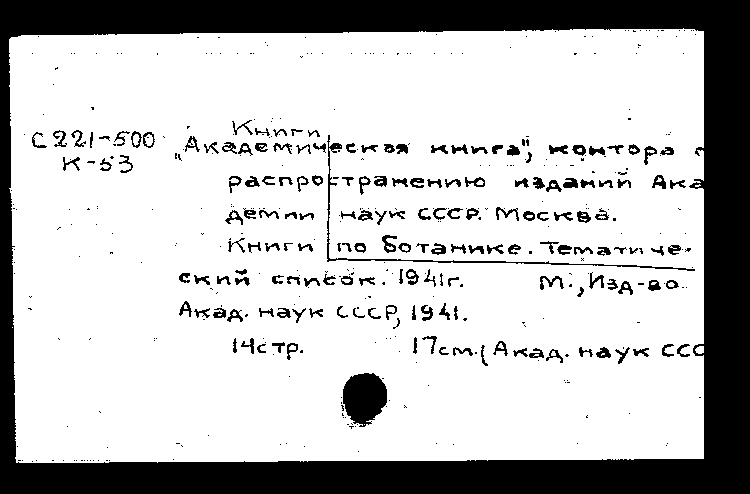 Книги
С221-500 "Академическая книга", контора п
К-53
распространению изданий Ака
демии наук СССР. Москва.
Книги по ботанике. Тематиче-
ский список. 1941г. М., Изд-во
Акад. наук СССР, 1941.
14стр. 17см. (Акад. наук ССС